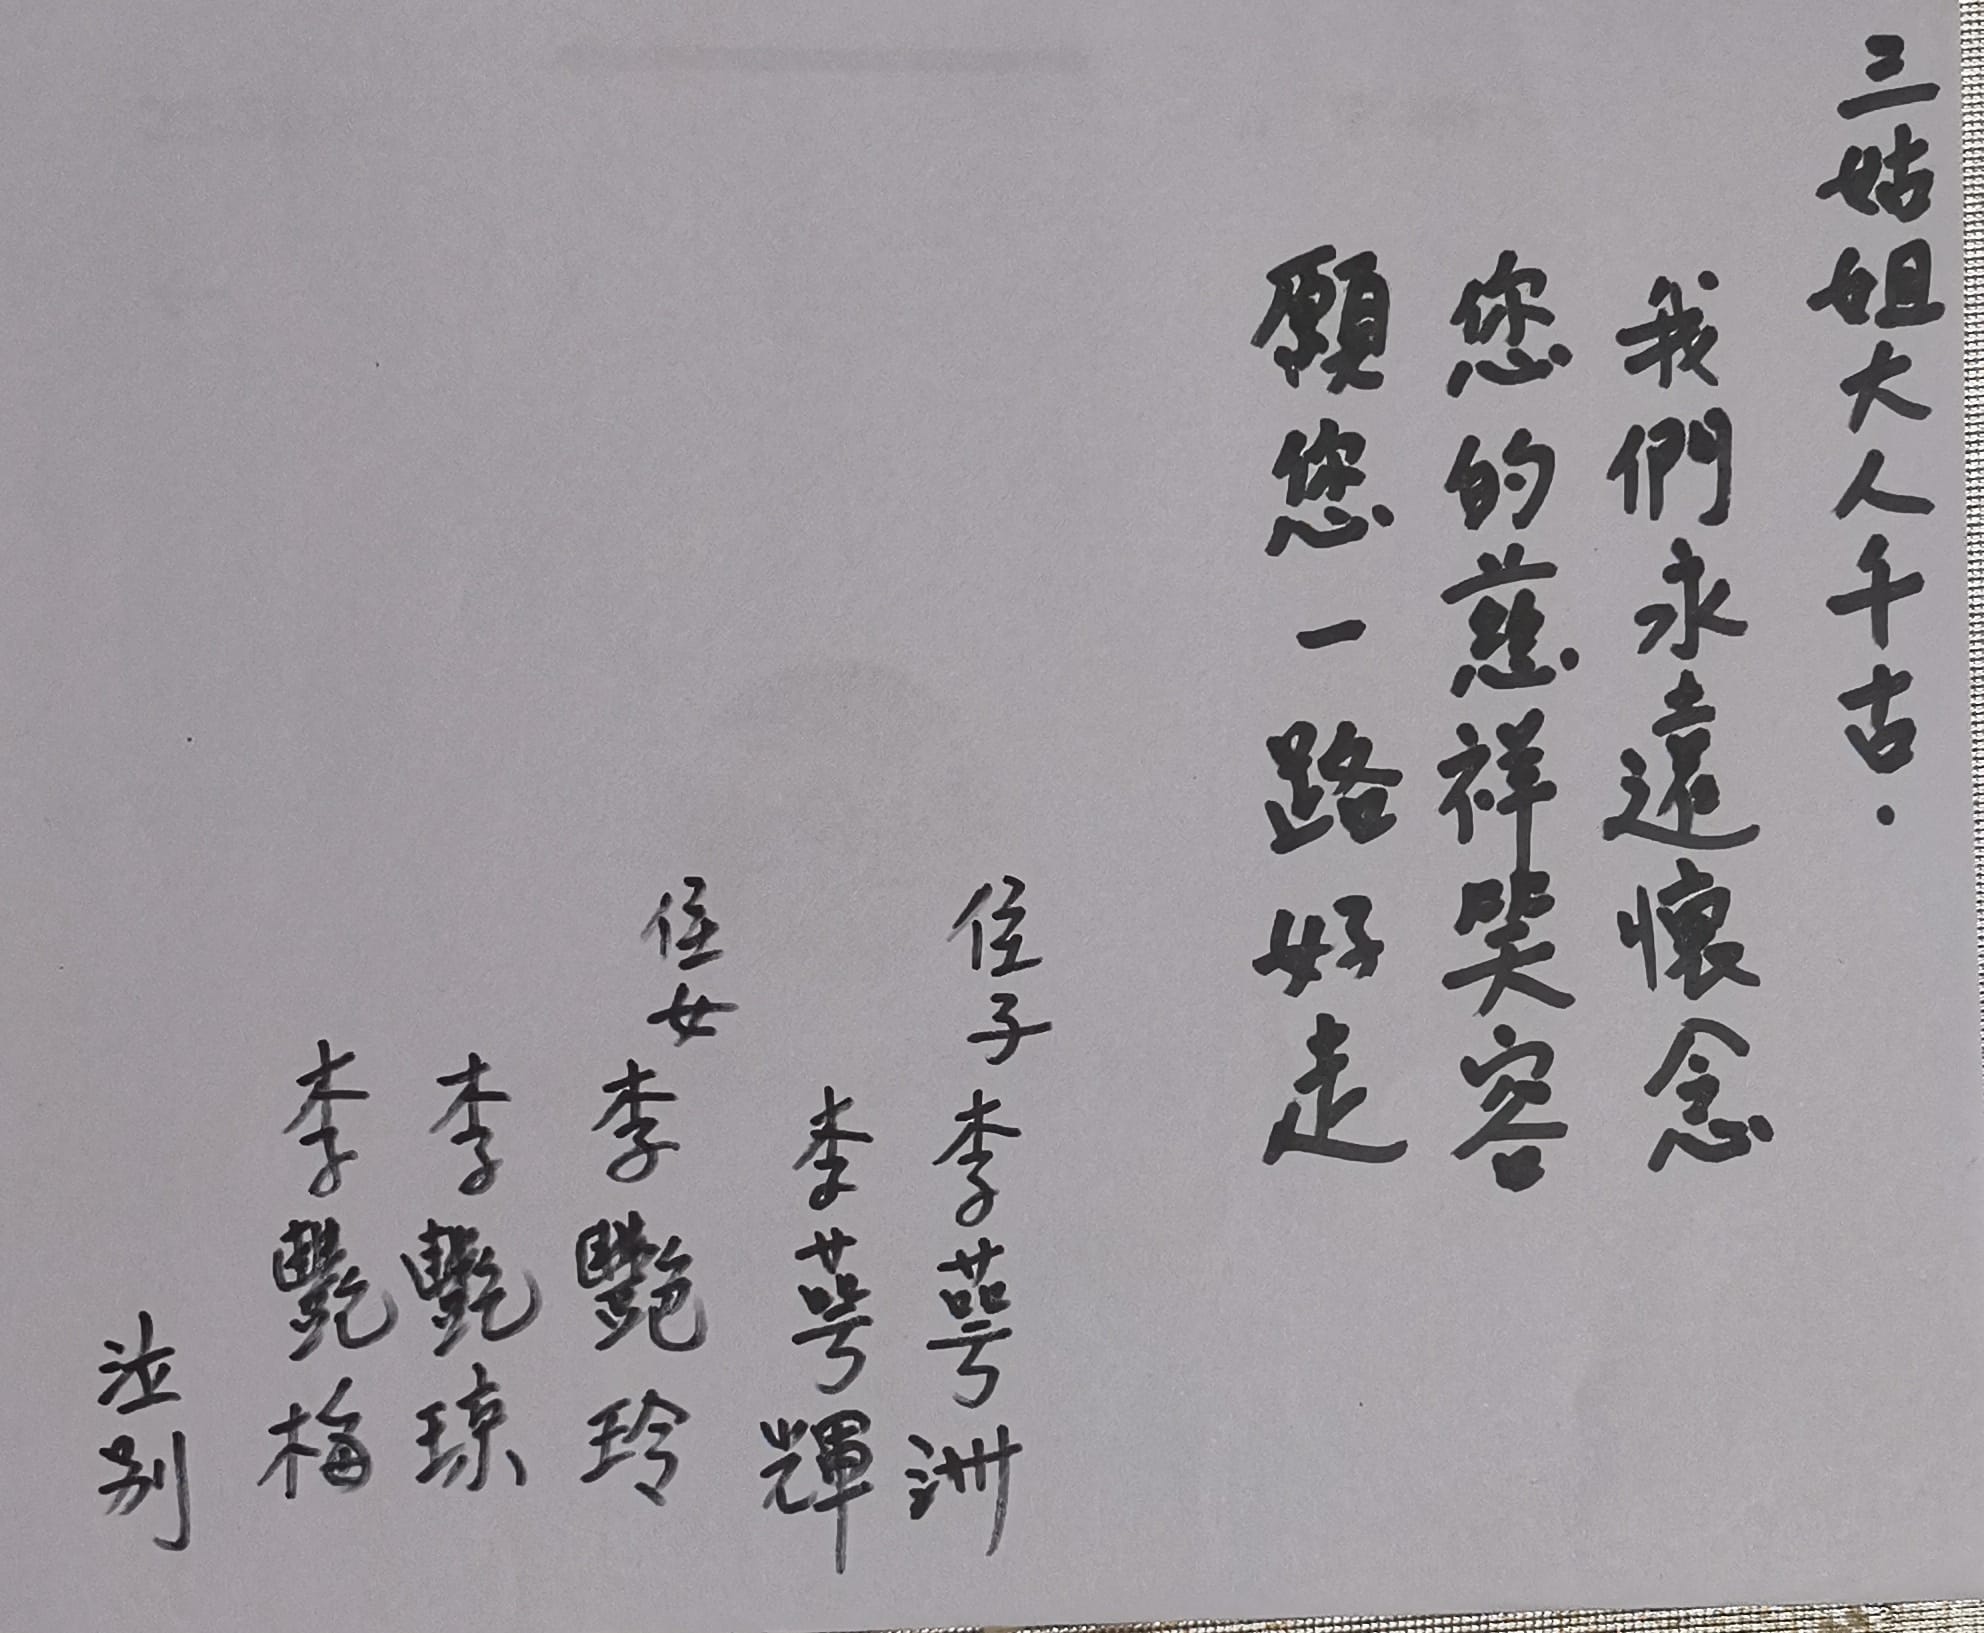 三姑姐大人千古.
我們永遠懷念
您的慈祥笑容
願您一路好走
侄子李萼洲
李萼輝
侄女李艷玲
李艷琼
李艷梅
泣别